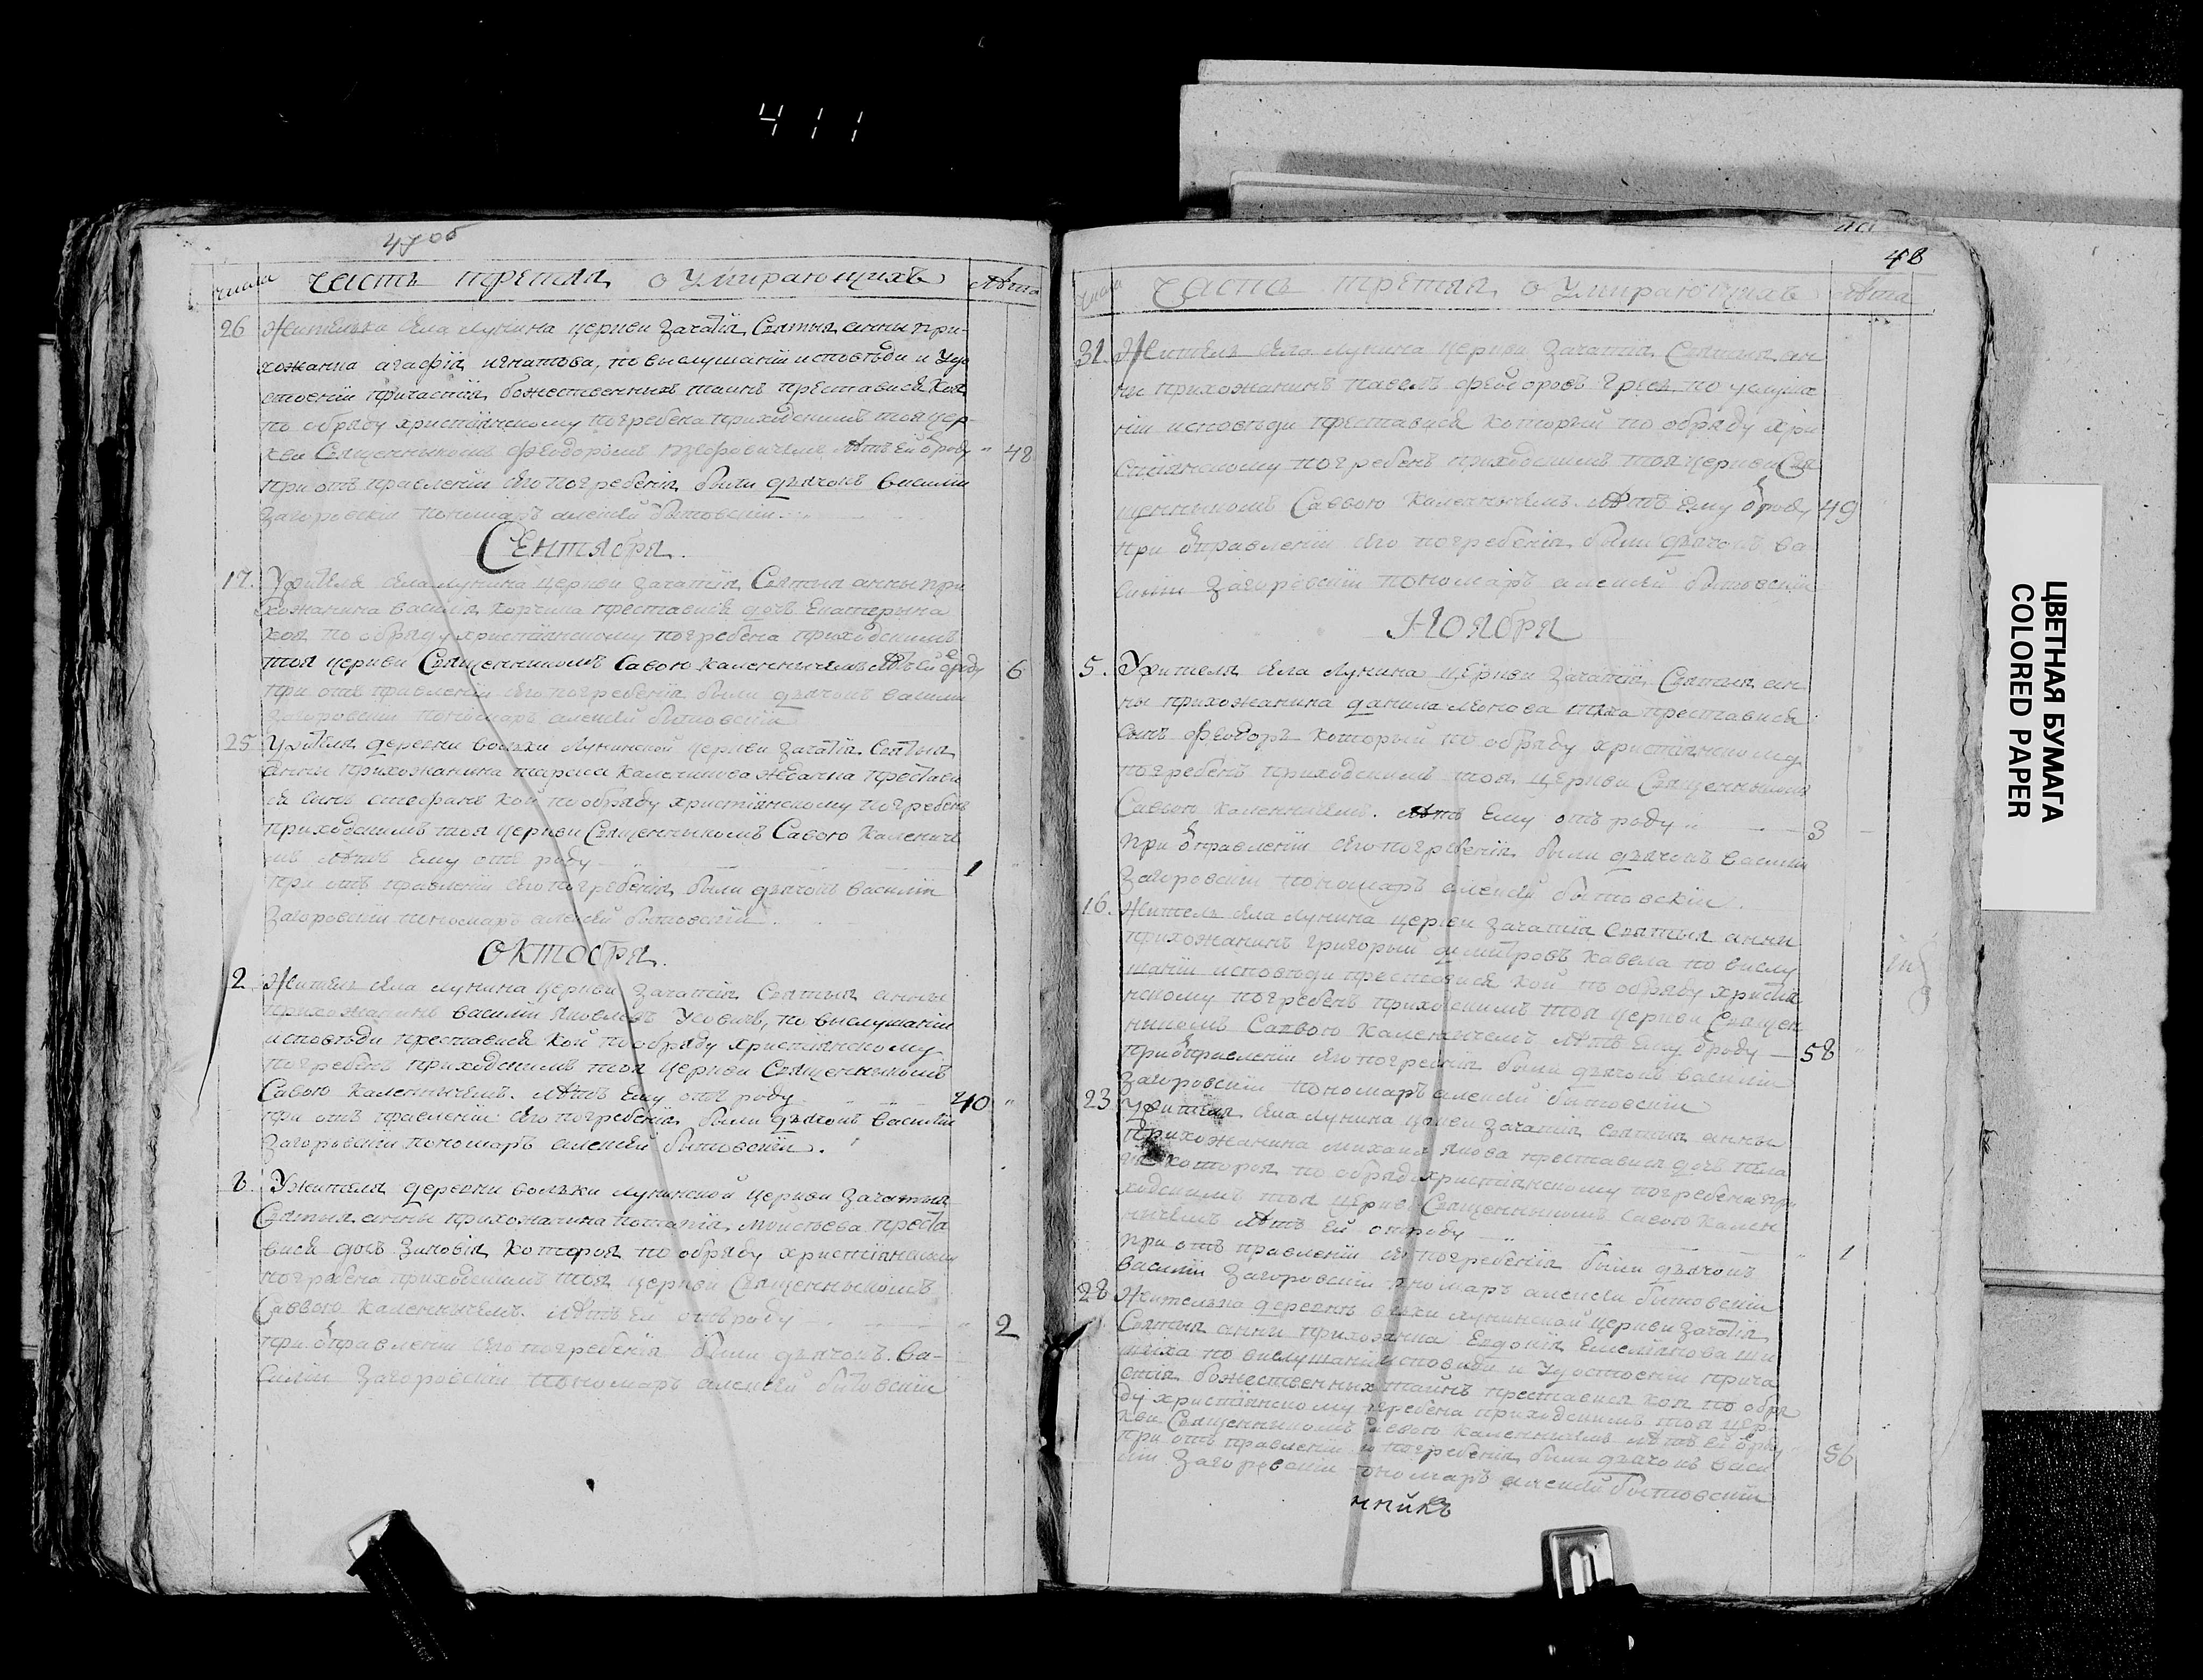 411
47 об
числа часть третия о Умирающихъ Лѣта
26 Жителька села Лунина церкви Зачатія Святыя анны при-
хожанка агафія игнатова, по выслушаніи исповѣди и Удо
стоеніи причастія божественныхъ таинъ преставися коя
по обряду христіянскому погребена приходскимъ тоя цер-
кви Священникомъ Феодоромъ Лѣтъ ей ѿроду 48
при отъ правленіи его погребенія были дьячокъ василий
Загоровскій пономаръ алексѣй битовскій.
Сентября.
17. У жителя села лунина церкви зачатія Святыя анны при
хожанина василія корчика преставися дочь Екатерына
коя по обряду христіянскому погребена приходскимъ
тоя церкви Священникомъ Савою каленичемъ Лѣтъ ей ѿроду 6
при отъ правленіи его погребенія были дьячокъ василий
Загоровский пономаръ алексѣй битовскій
25 У жителя деревни вольки Лунинской церкви зачатія Святыя
Анны прихожанина тараса преставы
ся сынъ стефанъ кой по обряду христіянскому погребенъ
приходскимъ тоя церкви Священникомъ Савою Калениче
мъ лѣтъ ему отъ роду 1
при отъ правленіи его погребенія были дьячокъ василій
Загоровскій пономаръ алексѣй битовскій.
октобря.
2. Житель села лунина церкви Зачатія Святыя анны
прихожанинъ василій Яковлевъ Усовичъ, по выслушаніи
исповѣди преставися кой по обряду христіянскому
погребенъ приходскимъ тоя церкви Священникомъ
Савою Каленичемъ. лѣтъ ему отъ роду 40
при отъ правленіи его погребенія были дьячокъ василій
Загоровскій пономаръ алексѣй битовскій.
8. У жителя деревни вольки лунинской церкви зачатия
Святыя анны прихожанина потапія Моисѣева преста
вися дочь Зиновія которая по обряду христіянскому
погребена приходскимъ тоя церкви Священникомъ
Саввою каленичемъ. лѣтъ ей отъ роду 2
при ѿправленіи его погребенія были дьячокъ ва-
силій Загоровскій пономаръ алексѣй битовскій
48
числа Часть третия о Умирающихъ лѣта
31. Житель села лунина церкви Зачатія Святыя ан
ны прихожанинъ павелъ феодоровъ по услуша
ніи исповѣди преставися который по обряду хри
стіянскому погребенъ приходскимъ тоя церкви Свя
щенникомъ Саввою каленичемъ. лѣтъ ему ѿроду 49
при ѿправленіи его погребенія были дьячокъ ва
силій Загоровскій пономаръ алексѣй битовскій
Ноября
5. У жителя села Лунина церкви Зачатія Святыя ан
ны прихожанина данила преставися
сынъ феодоръ который по обряду христіянскому
погребенъ приходскимъ тоя церкви Священникомъ
Савою каленичемъ. лѣтъ ему отъ роду 3
при ѿправленіи его погребенія были дьячокъ василій
Загоровскій пономаръ алексѣй битовскій.
16. Житель села лунина церкви зачатія Святыя анны
прихожанинъ григорый димитровъ кавела по выслу
шаніи исповѣди преставися кой по обряду христія
нскому погребенъ приходскимъ тоя церкви Священ
никомъ Саввою каленичемъ лѣтъ ему ѿроду 58
при ѿправленіи его погребенія были дьячокъ василій
Загоровскій пономаръ алексѣй битовскій
23 У жителя села лунина церкви зачатія святыя анны
прихожанина михаила преставися дочь
которая по обряду христіянскому погребена при
ходскимъ тоя церкви Священникомъ Савою кален
ичемъ лѣтъ ей отроду 1
при отъ правленіи его погребенія были дьячокъ
василій Загоровскій пономаръ алексѣй битовскій
28 Жителька деревнѣ вольки лунинской церкви зачатія
Святыя анны прихожанка Евдокія Емеліянова
по выслушаніи исповѣди и Удостоеніи прича
стія божественныхъ таинъ преставися коя по обря
ду христіянскому погребена приходскимъ тоя цер-
кви Священникомъ Саввою каленичемъ лѣтъ ей ѿроду 56
при отъ правленіи его погребенія были дьячокъ васи
лій Загоровскій пономаръ алексѣй битовскій
нникъ
ЦВЕТНАЯ БУМАГА
COLORED PAPER